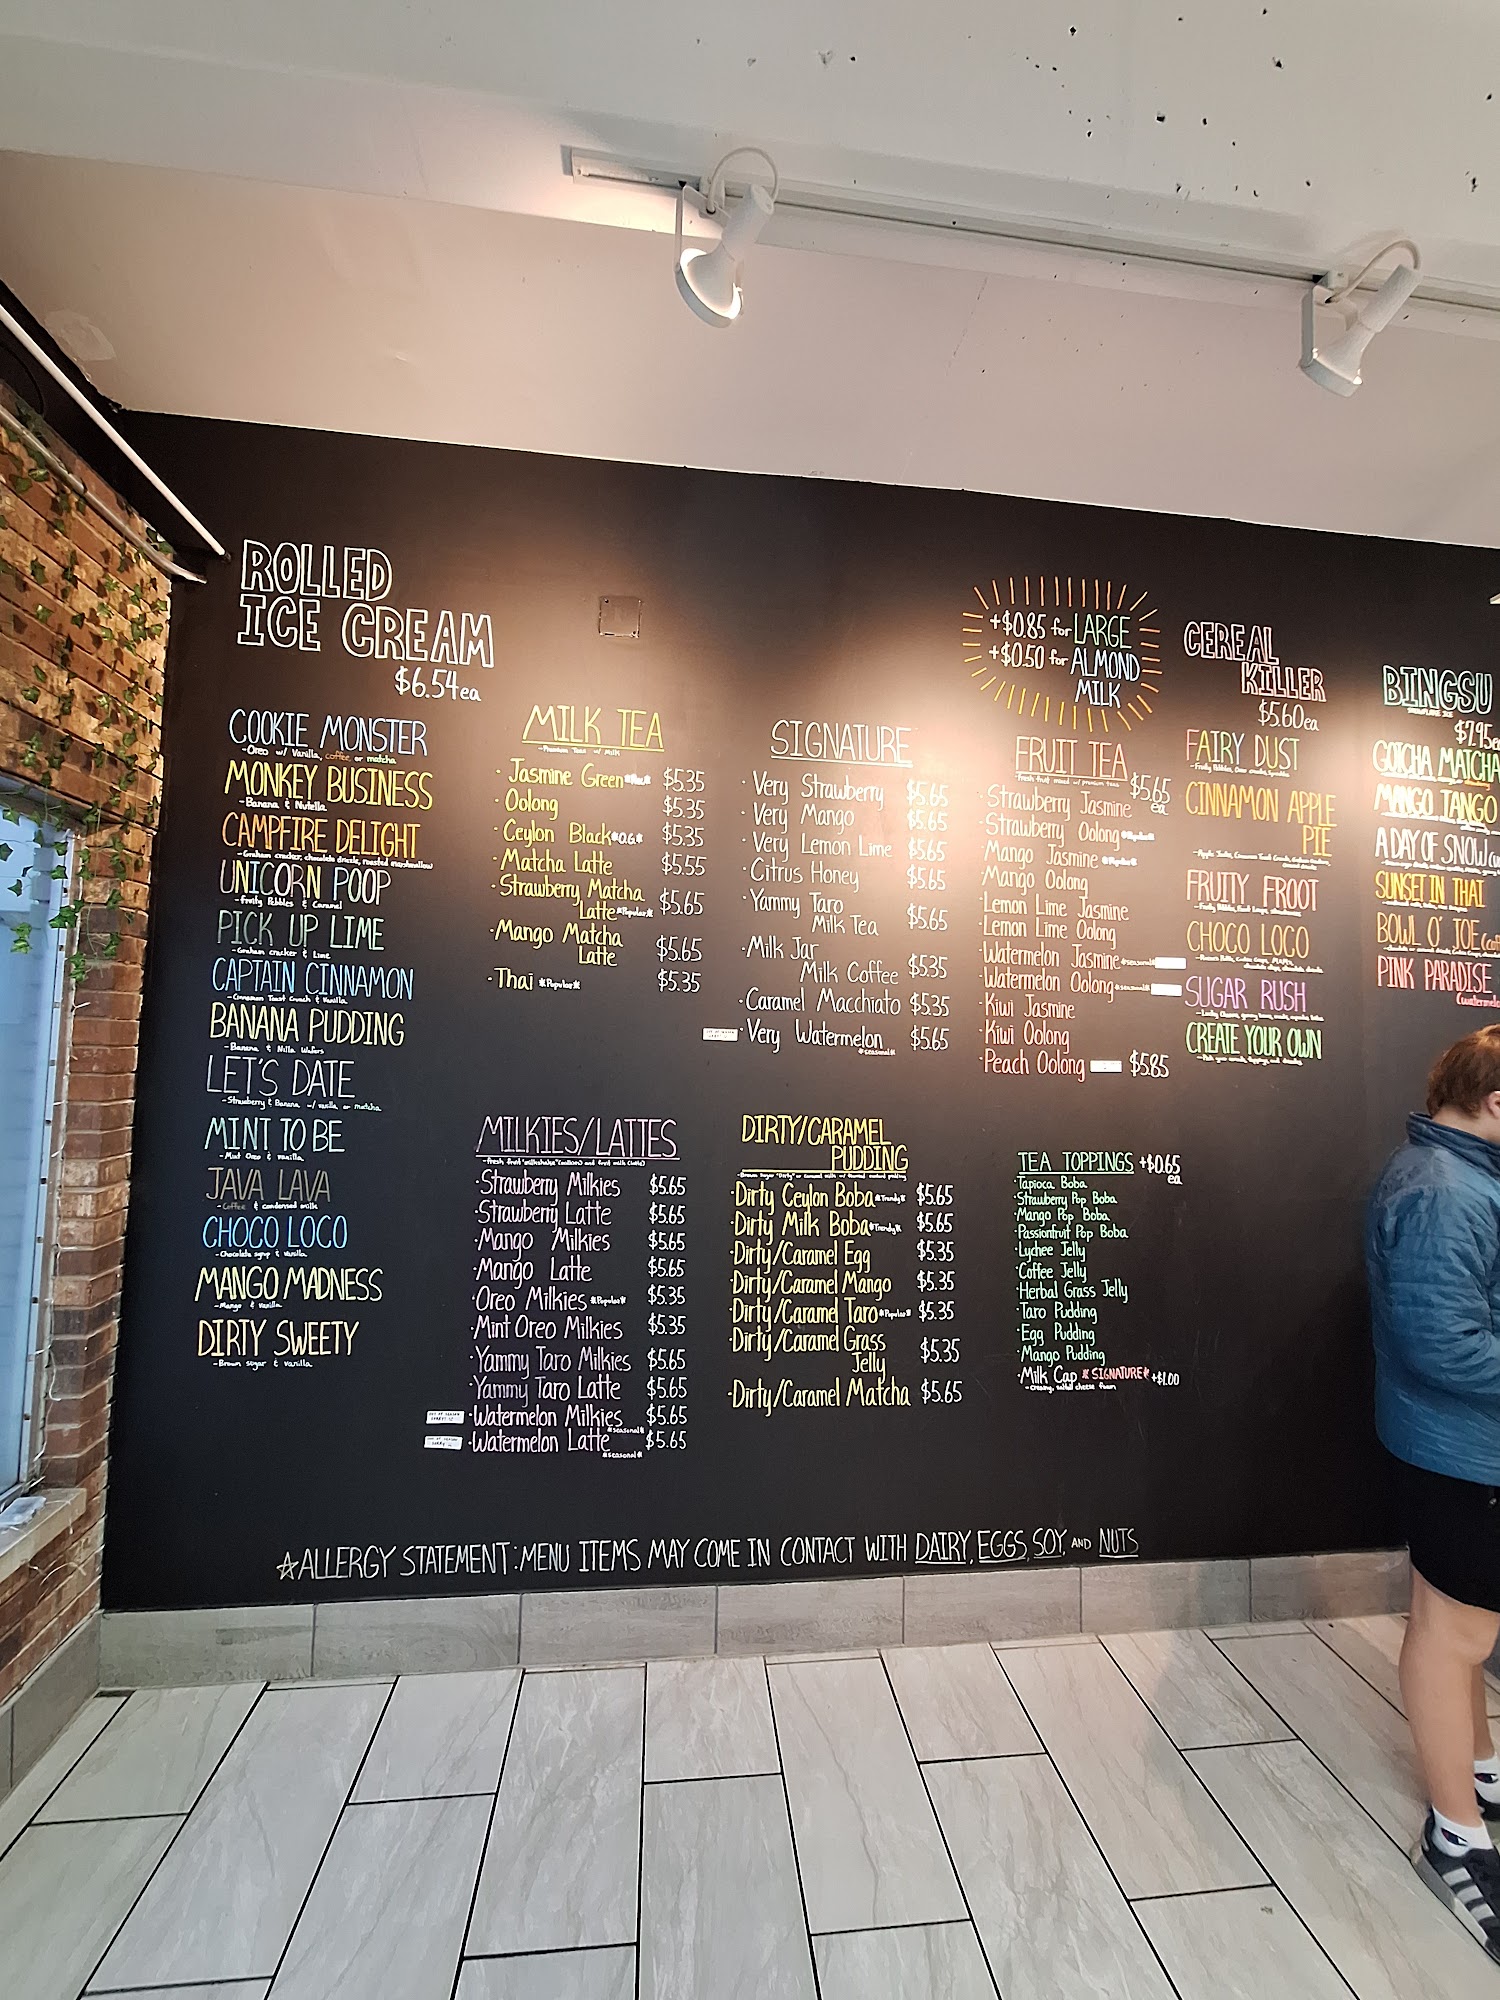 ROLLED
ICE CREAM
$6.54 ea
COOKIE MONSTER
-Oreo w/ Vanilla, coffee, or matcha
MONKEY BUSINESS
-Banana & Nutella
CAMPFIRE DELIGHT
-Graham cracker, chocolate drizzle, roasted marshmallow
UNICORN POOP
-Fruity Pebbles & Caramel
PICK UP LIME
-Graham cracker & Lime
CAPTAIN CINNAMON
-Cinnamon Toast Crunch & Vanilla
BANANA PUDDING
-Banana & Nilla Wafers
LET'S DATE
-Strawberry & Banana w/ vanilla or matcha
MINT TO BE
-Mint Oreo & vanilla
JAVA LAVA
-Coffee & condensed milk
CHOCO LOCO
-Chocolate syrup & Vanilla
MANGO MADNESS
-Mango & Vanilla
DIRTY SWEETY
-Brown sugar & vanilla
MILK TEA
-Premium Teas w/ Milk
·Jasmine Green $5.35
·Oolong $5.35
·Ceylon Black *O.G.* $5.35
·Matcha Latte $5.55
·Strawberry Matcha
Latte *Popular* $5.65
·Mango Matcha
Latte $5.65
·Thai *Popular* $5.35
SIGNATURE
·Very Strawberry $5.65
·Very Mango $5.65
·Very Lemon Lime $5.65
·Citrus Honey $5.65
·Yammy Taro
Milk Tea $5.65
·Milk Jar
Milk Coffee $5.35
·Caramel Macchiato $5.35
OUT OF SEASON
·Very Watermelon $5.65
*seasonal*
+$0.85 for LARGE
+$0.50 for ALMOND
MILK
FRUIT TEA
-Fresh fruit mixed w/ premium teas
$5.65
ea
·Strawberry Jasmine
·Strawberry Oolong *Popular*
·Mango Jasmine *Popular*
·Mango Oolong
·Lemon Lime Jasmine
·Lemon Lime Oolong
·Watermelon Jasmine *seasonal*
·Watermelon Oolong *seasonal*
·Kiwi Jasmine
·Kiwi Oolong
·Peach Oolong $5.85
CEREAL
KILLER
$5.60 ea
FAIRY DUST
CINNAMON APPLE
PIE
FRUITY FROOT
CHOCO LOCO
SUGAR RUSH
CREATE YOUR OWN
BINGSU
SNOWFLAKE ICE
$7.95 ea
GOTCHA MATCHA
MANGO TANGO
A DAY OF SNOW
SUNSET IN THAI
BOWL O' JOE
PINK PARADISE
MILKIES/LATTES
-fresh fruit "milkshakes" (milkies) and fruit milk (latte)
·Strawberry Milkies $5.65
·Strawberry Latte $5.65
·Mango Milkies $5.65
·Mango Latte $5.65
·Oreo Milkies *Popular* $5.35
·Mint Oreo Milkies $5.35
·Yammy Taro Milkies $5.65
·Yammy Taro Latte $5.65
OUT OF SEASON
SORRY
·Watermelon Milkies $5.65
*seasonal*
OUT OF SEASON
SORRY
·Watermelon Latte $5.65
*seasonal*
DIRTY/CARAMEL
PUDDING
·Dirty Ceylon Boba *Trendy* $5.65
·Dirty Milk Boba *Trendy* $5.65
·Dirty/Caramel Egg $5.35
·Dirty/Caramel Mango $5.35
·Dirty/Caramel Taro *Popular* $5.35
·Dirty/Caramel Grass
Jelly $5.35
·Dirty/Caramel Matcha $5.65
TEA TOPPINGS +$0.65
ea
·Tapioca Boba
·Strawberry Pop Boba
·Mango Pop Boba
·Passionfruit Pop Boba
·Lychee Jelly
·Coffee Jelly
·Herbal Grass Jelly
·Taro Pudding
·Egg Pudding
·Mango Pudding
·Milk Cap *SIGNATURE* +$1.00
-creamy, salted cheese foam
☆ALLERGY STATEMENT: MENU ITEMS MAY COME IN CONTACT WITH DAIRY, EGGS, SOY, AND NUTS